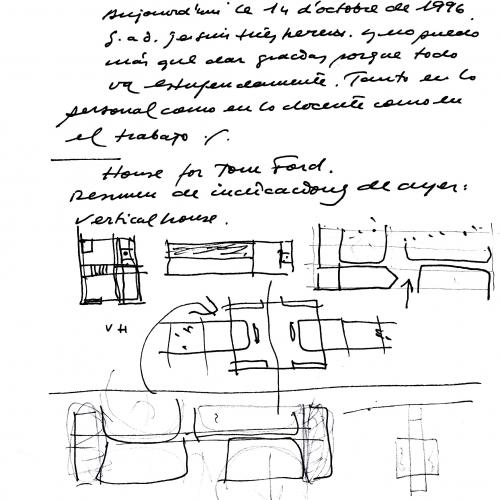 Aujourd'hui ce 14 d'octobre de 1996
G. a D. je suis très hereux. y no puedo
más que dar gracias porque todo
va estupendamente. Tanto en lo
personal como en lo docente como en
el trabajo ./.
House for Tom Ford.
Resumen de indicaciones de ayer:
Vertical house.
V H